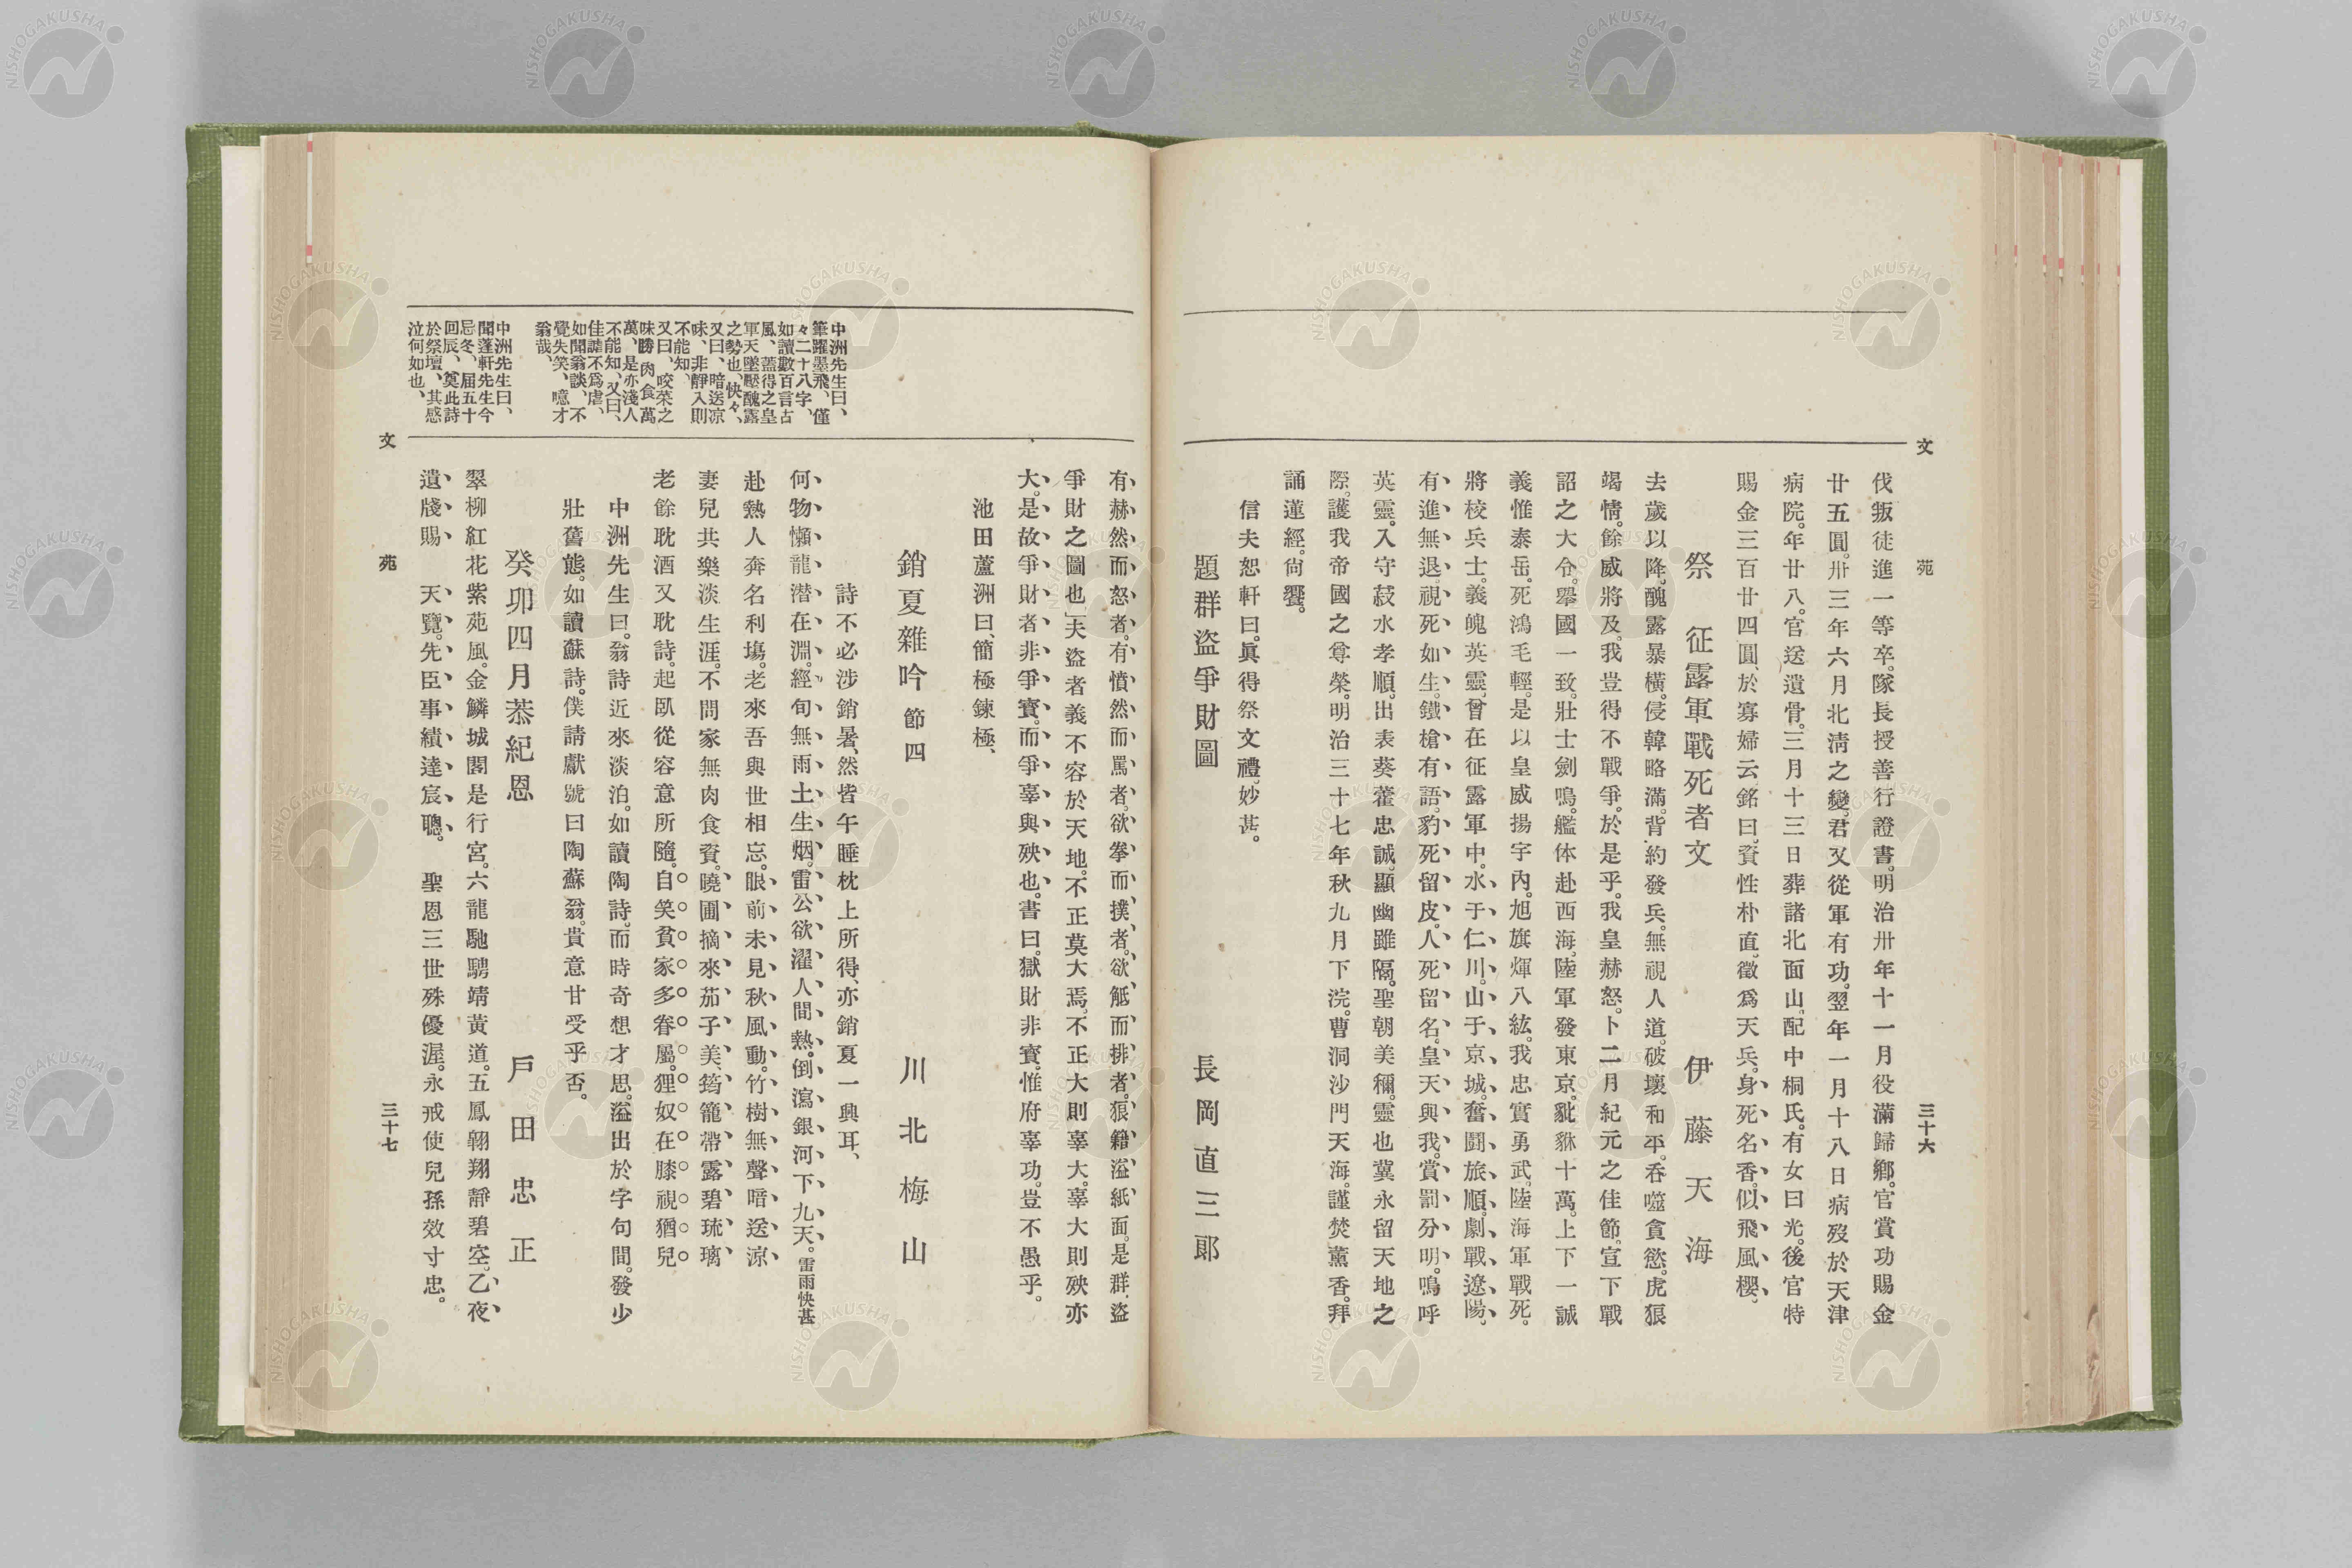 文
苑
三十六
伐叛徒進一等卒。隊長授善行證書。明治卅年十一月役滿歸鄉。官賞功賜金
廿五圓。卅三年六月北清之變。君又從軍有功。翌年一月十八日病歿於天津
病院。年廿八。官送遺骨。三月十三日葬諸北面山。配中桐氏。有女曰光。後官特
賜金三百廿四圓、於寡婦云銘曰。資性朴直。徵爲天兵。身死名香。似飛風櫻。
祭　征露軍戰死者文　伊藤天海
去歲以降。醜露暴橫。侵韓略滿。背約發兵。無視人道。破壞和平。呑噬貪慾。虎狼
竭情。餘威將及。我豈得不戰爭。於是乎。我皇赫怒。卜二月紀元之佳節。宣下戰
詔之大令。舉國一致。壯士劍鳴。艦体赴西海。陸軍發東京。豼貅十萬。上下一誠
義惟泰岳。死鴻毛輕。是以皇威揚宇內。旭旗煇八紘。我忠實勇武。陸海軍戰死。
將校兵士。義魄英靈。曾在征露軍中。水于仁川。山于京城。奮鬪旅順。劇戰遼陽。
有進無退。視死如生。鐵槍有語。豹死留皮。人死留名。皇天與我。賞罰分明。嗚呼
英靈。入守菽水孝順。出表葵藿忠誠。顯幽雖隔。聖朝美稱。靈也冀永留天地之
際。護我帝國之尊榮。明治三十七年秋九月下浣。曹洞沙門天海。謹焚薰香。拜
誦蓮經。尙饗。
信夫恕軒曰。眞得祭文禮。妙甚。
題群盜爭財圖　長岡直三郞
有赫然而怒者。有憤然而罵者。欲拳而撲者。欲觝而排者。狼籍溢紙面。是群盜
爭財之圖也」夫盜者義不容於天地。不正莫大焉。不正大則辜大。辜大則殃亦
大。是故爭財者非爭寶。而爭辜與殃也。書曰。獄財非寶。惟府辜功。豈不愚乎。
池田蘆洲曰、簡極鍊極、
銷夏雜吟 節四　川北梅山
詩不必涉銷暑、然皆午睡枕上所得、亦銷夏一興耳、
何物懶龍潛在淵。經旬無雨土生烟。雷公欲濯人間熱。倒瀉銀河下九天。雷雨快甚
赴熱人奔名利塲。老來吾與世相忘。眼前未見秋風動。竹樹無聲暗送涼
妻兒共樂淡生涯。不問家無肉食資。曉圃摘來茄子美。筠籠帶露碧琉璃
老餘耽酒又耽詩。起臥從容意所隨。自笑貧家多眷屬。狸奴在膝視猶兒
中洲先生曰。翁詩近來淡泊。如讀陶詩。而時奇想才思。溢出於字句間。發少
壯舊態。如讀蘇詩。僕請獻號曰陶蘇翁。貴意甘受乎否。
癸卯四月恭紀恩　戶田忠正
翠柳紅花紫苑風。金鱗城閣是行宮。六龍馳騁靖黃道。五鳳翱翔靜碧空。乙夜
遺牋賜　天覽。先臣事績達宸聰。　聖恩三世殊優渥。永戒使兒孫效寸忠。
中洲先生曰、
筆躍墨飛、僅
々二十八字、
如讀數百言古
風、蓋得之皇
軍天墜壓醜露
之勢也、快々、
又曰、暗送凉
味、非靜入則
不能知、
又曰、咬菜之
味勝肉食萬
萬、是亦淺人
不能知、又曰、
佳謔不爲虐、
如聞翁談、不
覺失笑、噫才
翁哉、
中洲先生曰、
聞蓬軒先生今
忌冬、届五十
回辰、奠此詩
於祭壇、其感
泣何如也、
文
苑
三十七